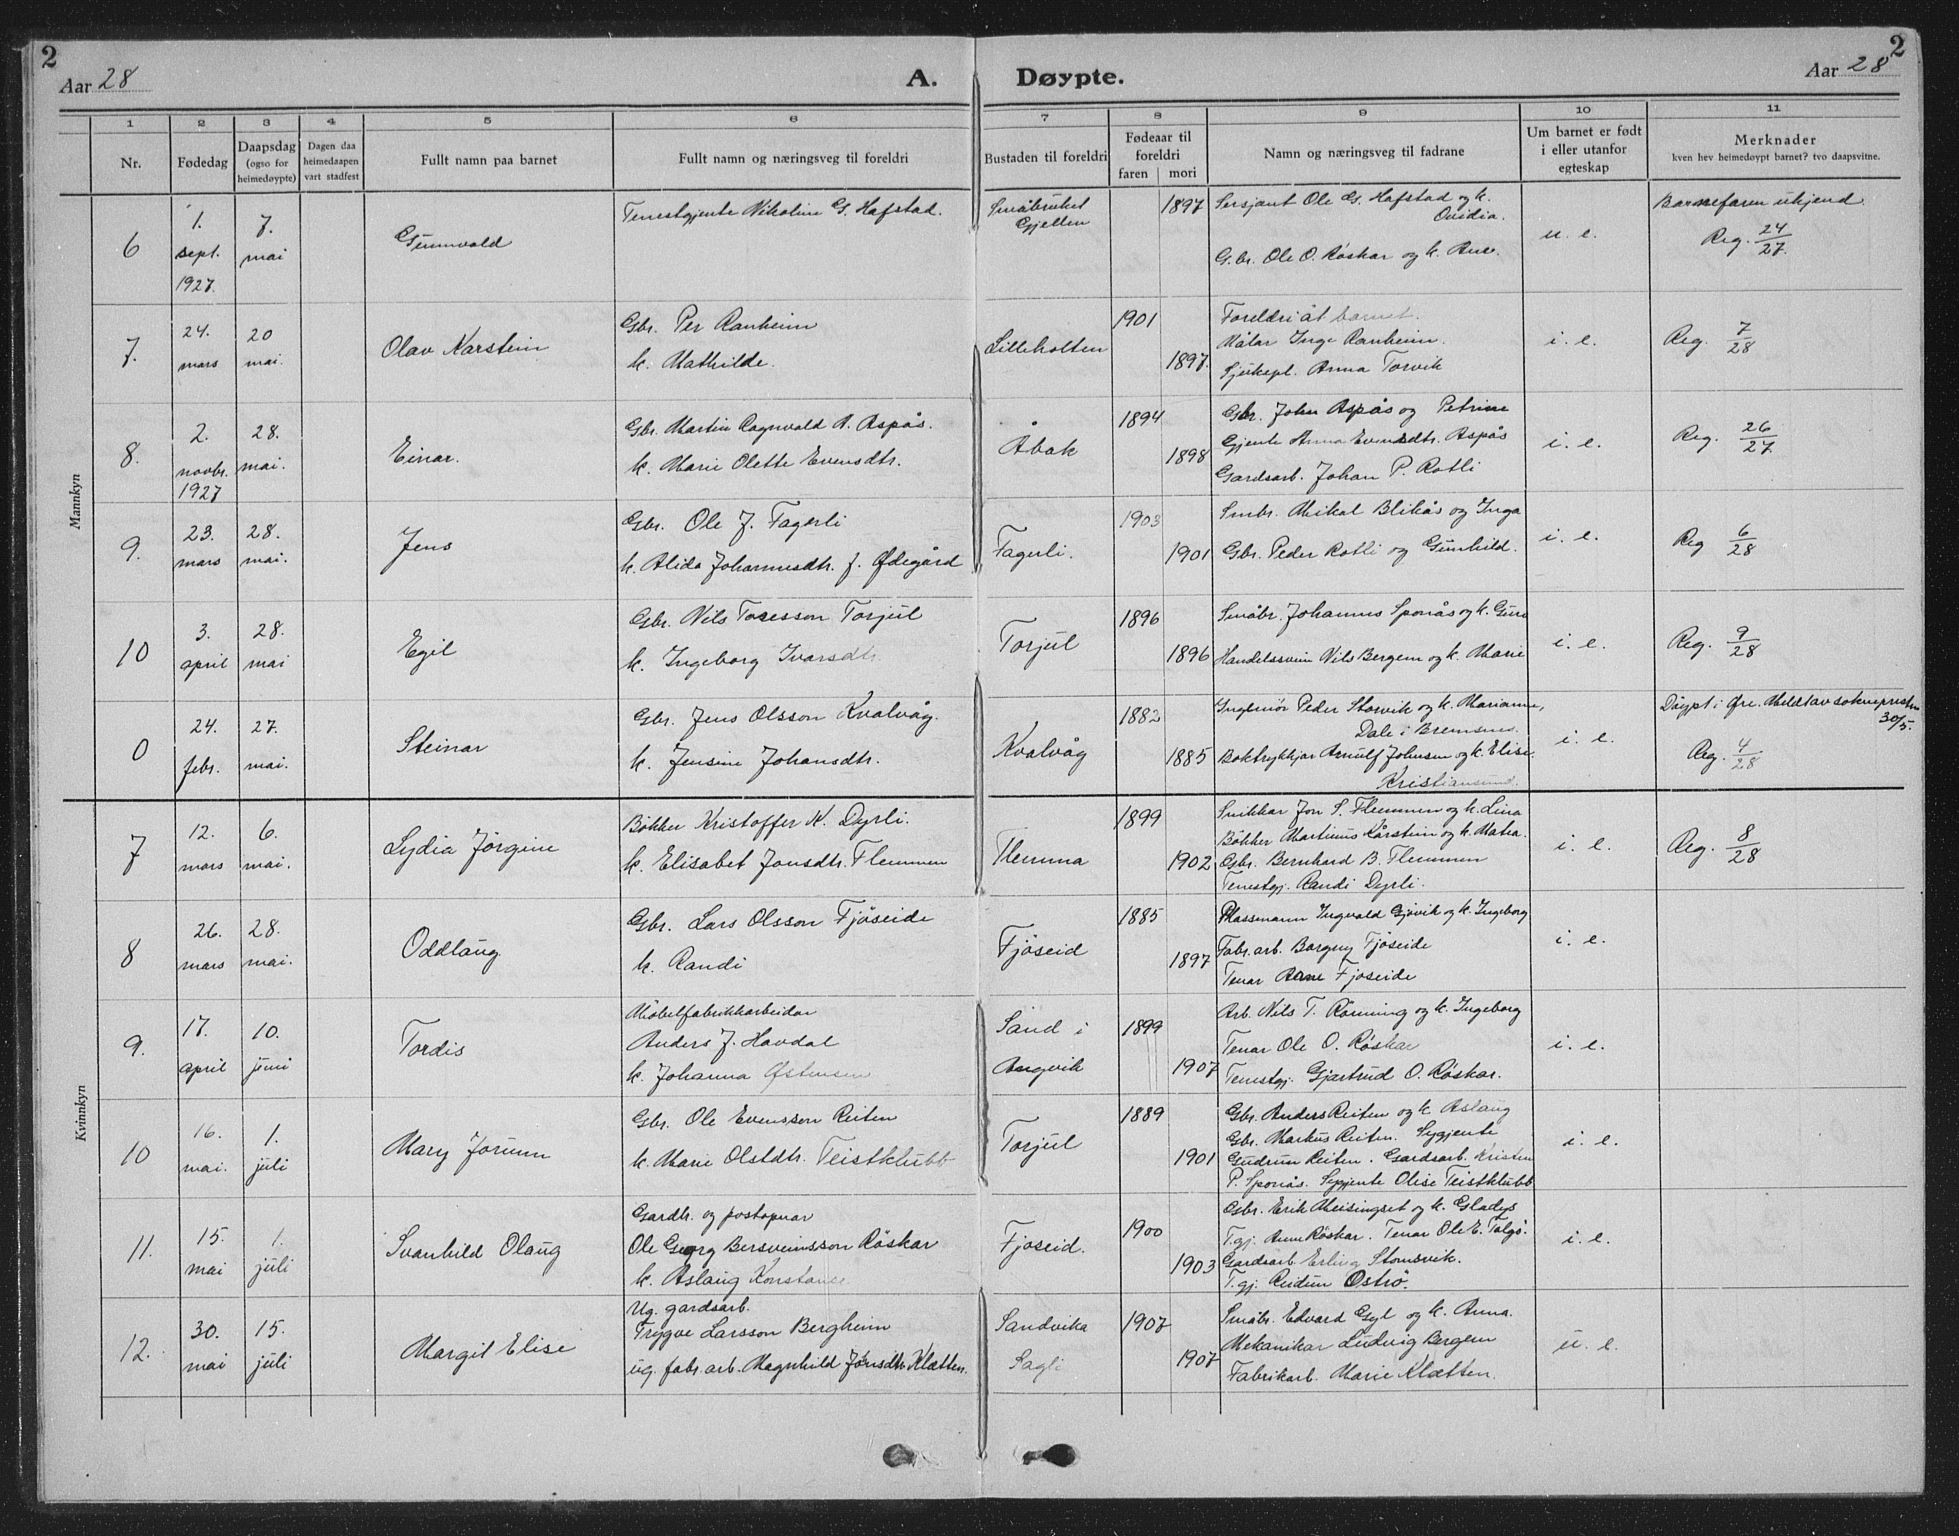 2
Aar 28
A. Døypte.
Aar 28
2
1 2 3 4 5 6 7 8 9 10 11
Nr.
Fødedag
Daapsdag (ogso for heimedøypte)
Dagen daa heimedaapen vart stadfest
Fullt namn paa barnet
Fullt namn og næringsveg til foreldri
Bustaden til foreldri
Fødeaar til foreldri
faren mori
Namn og næringsveg til fadrane
Um barnet er født i eller utanfor egteskap
Merknader
kven hev heimedøypt barnet? tvo daapsvitne.
Mannkyn
6
1. sept. 1927.
7. mai
Gunnvald
Tenestgjente Nikoline G. Hafstad.
Småbruket Gjellen
1897
Sersjant Ole G. Hafstad og k. Ovidia.
G.br. Ole O. Röskar og k. Ane.
u. e.
Barnefaren ukjend
Reg. 24/27.
7.
24. mars
20 mai.
Olav Karstein
Gbr. Per Ranheim
k. Mathilde.
Lilleholten
1901
1897.
Foreldri åt barnet.
Målar Inge Ranheim.
Sjukepl. Anna Torvik
i. e.
Reg. 7/28
8.
2. novbr. 1927
28. mai.
Einar.
Gbr. Martin Ragnvald A. Aspås.
k. Marie Olette Evensdtr.
Åbak
1894
1898
Gbr. John Aspås og Petrine
Gjente Anna Evensdtr. Aspås
Gardsarb. Johan P. Rotli
i. e.
Reg. 26/27
9.
23. mars
28. mai.
Jens
Gbr. Ole J. Fagerli
k. Alida Johannesdtr. f. Ødegård
Fagerli.
1903
1901
Smbr. Mikal Blikås og Inga
Gbr. Peder Rotli og Gunhild.
i. e.
Reg 6/28
10
3. april
28. mai
Egil
Gbr. Nils Toresson Torjul
k. Ingeborg Ivarsdtr.
Torjul
1896
1896
Småbr. Johannes Sponås og k. Guro
Handelssvein Nils Bergem og k. Marie
i. e.
Reg. 9/28
0
24. febr.
27. mai.
Steinar
Gbr. Jens Olsson Kvalvåg.
k. Jensine Johansdtr.
Kvalvåg
1882
1885
Ingeniør Peder Storvik og k. Marianne,
Dale i Bremsnes.
Boktrykkjar Arnulf Johnsen og k. Elise.
Kristiansund.
i. e.
Döypt i Øre. Meldt av sokneprsten 30/5.
Reg. 4/28
Kvinnkyn
7
12. mars
6. mai.
Lydia Jörgine
Bökker Kristoffer K. Dyrli.
k. Elisabet Jonsdtr. Flemmen
Flemma
1899
1902
Snikkar Jon S. Flemmen og k. Lina
Bökker Martinus Kårstein og k. Matea.
Gbr. Bernhard B. Flemmen
Tenestgj. Randi Dyrli.
i. e.
Reg. 8/28
8
26. mars
28. mai.
Oddlaug
Gbr. Lars Olsson Fjöseide
k. Randi
Fjöseid
1885
1897
Plassmann Ingvald Gjövik og k. Ingeborg
Fabr. arb. Borgny Fjöseide
Tenar Arne Fjoseide
i. e.
9.
17. april
10. juni
Tordis
Möbelfabrikkarbeidar
Anders J. Havdal
k. Johanna Østensen
Sand i Angvik
1899
1907
Arb. Nils T. Rönning og k. Ingeborg
Tenar Ole O. Röskar
Tenestgj. Gjartrud O. Röskar.
i. e.
10
16. mai.
1. juli
Mary Jorunn
Gbr. Ole Evensson Reiten
k. Marie Olstdtr. Teistklubb
Torjul
1889
1901
Gbr. Anders Reiten og k. Aslaug
Gbr. Markus Reiten. Sygjente
Gudrun Reiten. Gardsarb. Kristen
P. Sponås. Sygjente Olise Teistklubb
i. e.
11.
15. mai
1. juli
Svanhild Olaug
Gardbr. og postopnar
Ole Georg Bersveinsson Röskar
k. Aslaug Konstanse
Fjoseid.
1900
1903
Gbr. Erik Meisingset og k. Gladys
T.gj. Anne Röskar. Tenar Ole E. Talgö.
Gardsarb Erling Stomsvik.
T.gj. Reidun Oströ.
i. e.
12.
30. mai
15. juli
Margit Elise
Ug. gardsarb.
Trygve Larsson Bergheim
ug. fabr. arb. Magnhild Jönsdtr. Klætten.
Sandvika
Sagli
1907
1907
Småbr. Edvard Gyl og k. Anna.
Mekanikar Ludvig Bergem
Fabrikarb. Marie Klætten.
u. e.